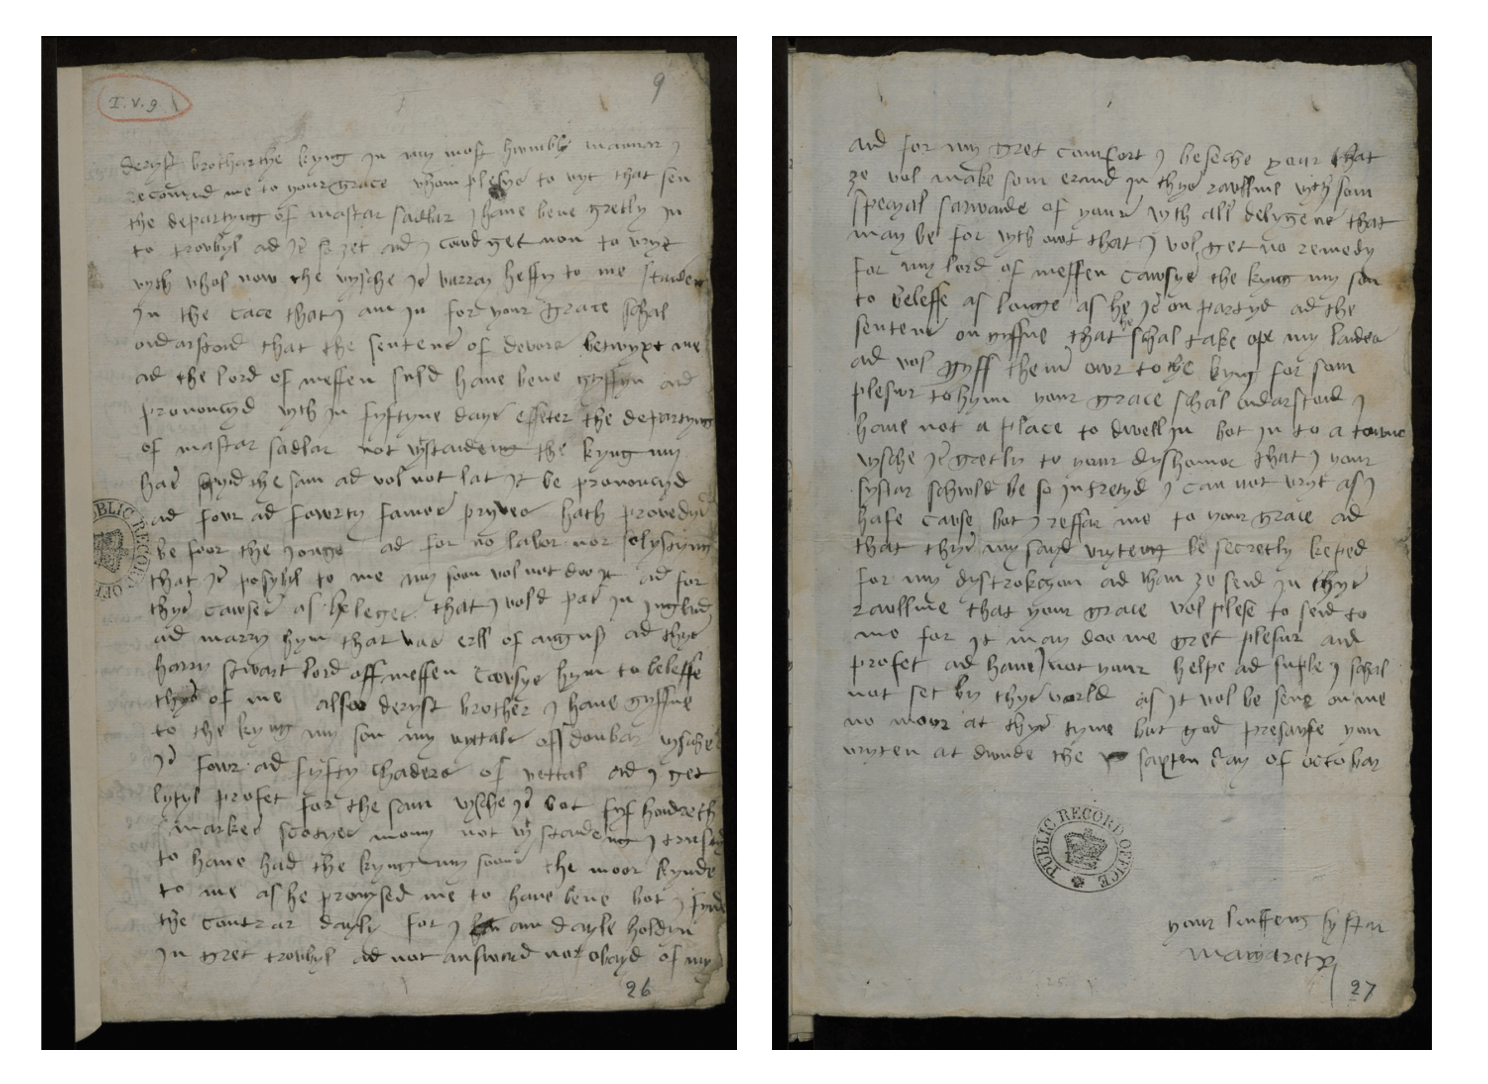 I. V. 9
9
deryst brothar the kyng in my most hwmbly mannar I
recomnd me to your grace vhom plesyd to vyt that sen
the departyng of mastar sadlar I have bene gretly in
to trowbyl ad is so zet ad I cowd get non to vryt
vyth vhol now the vysche is varray heffy to me standen
in the cace that I am in for your grace schal
ondarstond that the sentens of devors betwyxt me
ad the lord of meffen suld have bene gyffyn ad
prononcyd vyth in fyftyne days effter the departyng
of mastar sadlar not vystandeng the kyng my
has styd the sam ad vol not lat it be prononcyd
ad four ad fowrty famos pryves hath provedyd
be foor the Jonge ad for no labor nor solystynn
that is posybil to me my soon vol not doo it ad for
thys cawses as he leget that I vold pas in Ingland
ad marry hym that vas erll of anguss ad thys
harry stwart lord off meffen cawsys hym to beleffe
thys of me also deryst brother I have gyffne
to the kyng my son my vyttals off donbar vysche
is fowr ad fyfty chaders of vettal ad I get
lytyl profet for the sam vysche is bot fyf hondreth
markes scotyes mony not vystandeng I trust
to have had the kyng my soone the moor kynde
to me as he promysed me to have bene bot I fynd
the contrar dayli for I am dayle holdin
in gret trowbyl ad not answard nor obayd of my
26
and for my gret comfort I beseche your that
ze vol make som erand in thys rawllme vyth som
specyal sarwande of yours vyth all delygene that
may be for vyth owt that I vol get no remedy
for my lord of meffen cawsys the kyng my son
to beleffe as longe as he is on partyd ad the
sentens on gyffne that he schal take ope my landes
ad vol gyff them owr to the kyng for som
plesur to hym your grace schal ondarstond I
have not a place to dwell in bot in to a towne
vysche is gretly to your dyshonor that I your
systar schwld be so intretyd I can not vryt as I
hafe cawse bot I reffar me to your grace ad
that thys my sayd vryteng be secretly keped
for my dystrokcyon ad than ze send in thys
rawllme that your grace vol plese to send to
me for it may doo me gret plesur and
profet ad have I not your helpe ad suple I schal
not set by thys varld as it vol be sene on me
no moor at thys tyme but god presarfe you
vryten at dwnde the saxten day of octobar
your luffeng systar
Margaret R
27
PUBLIC RECORD OFFICE